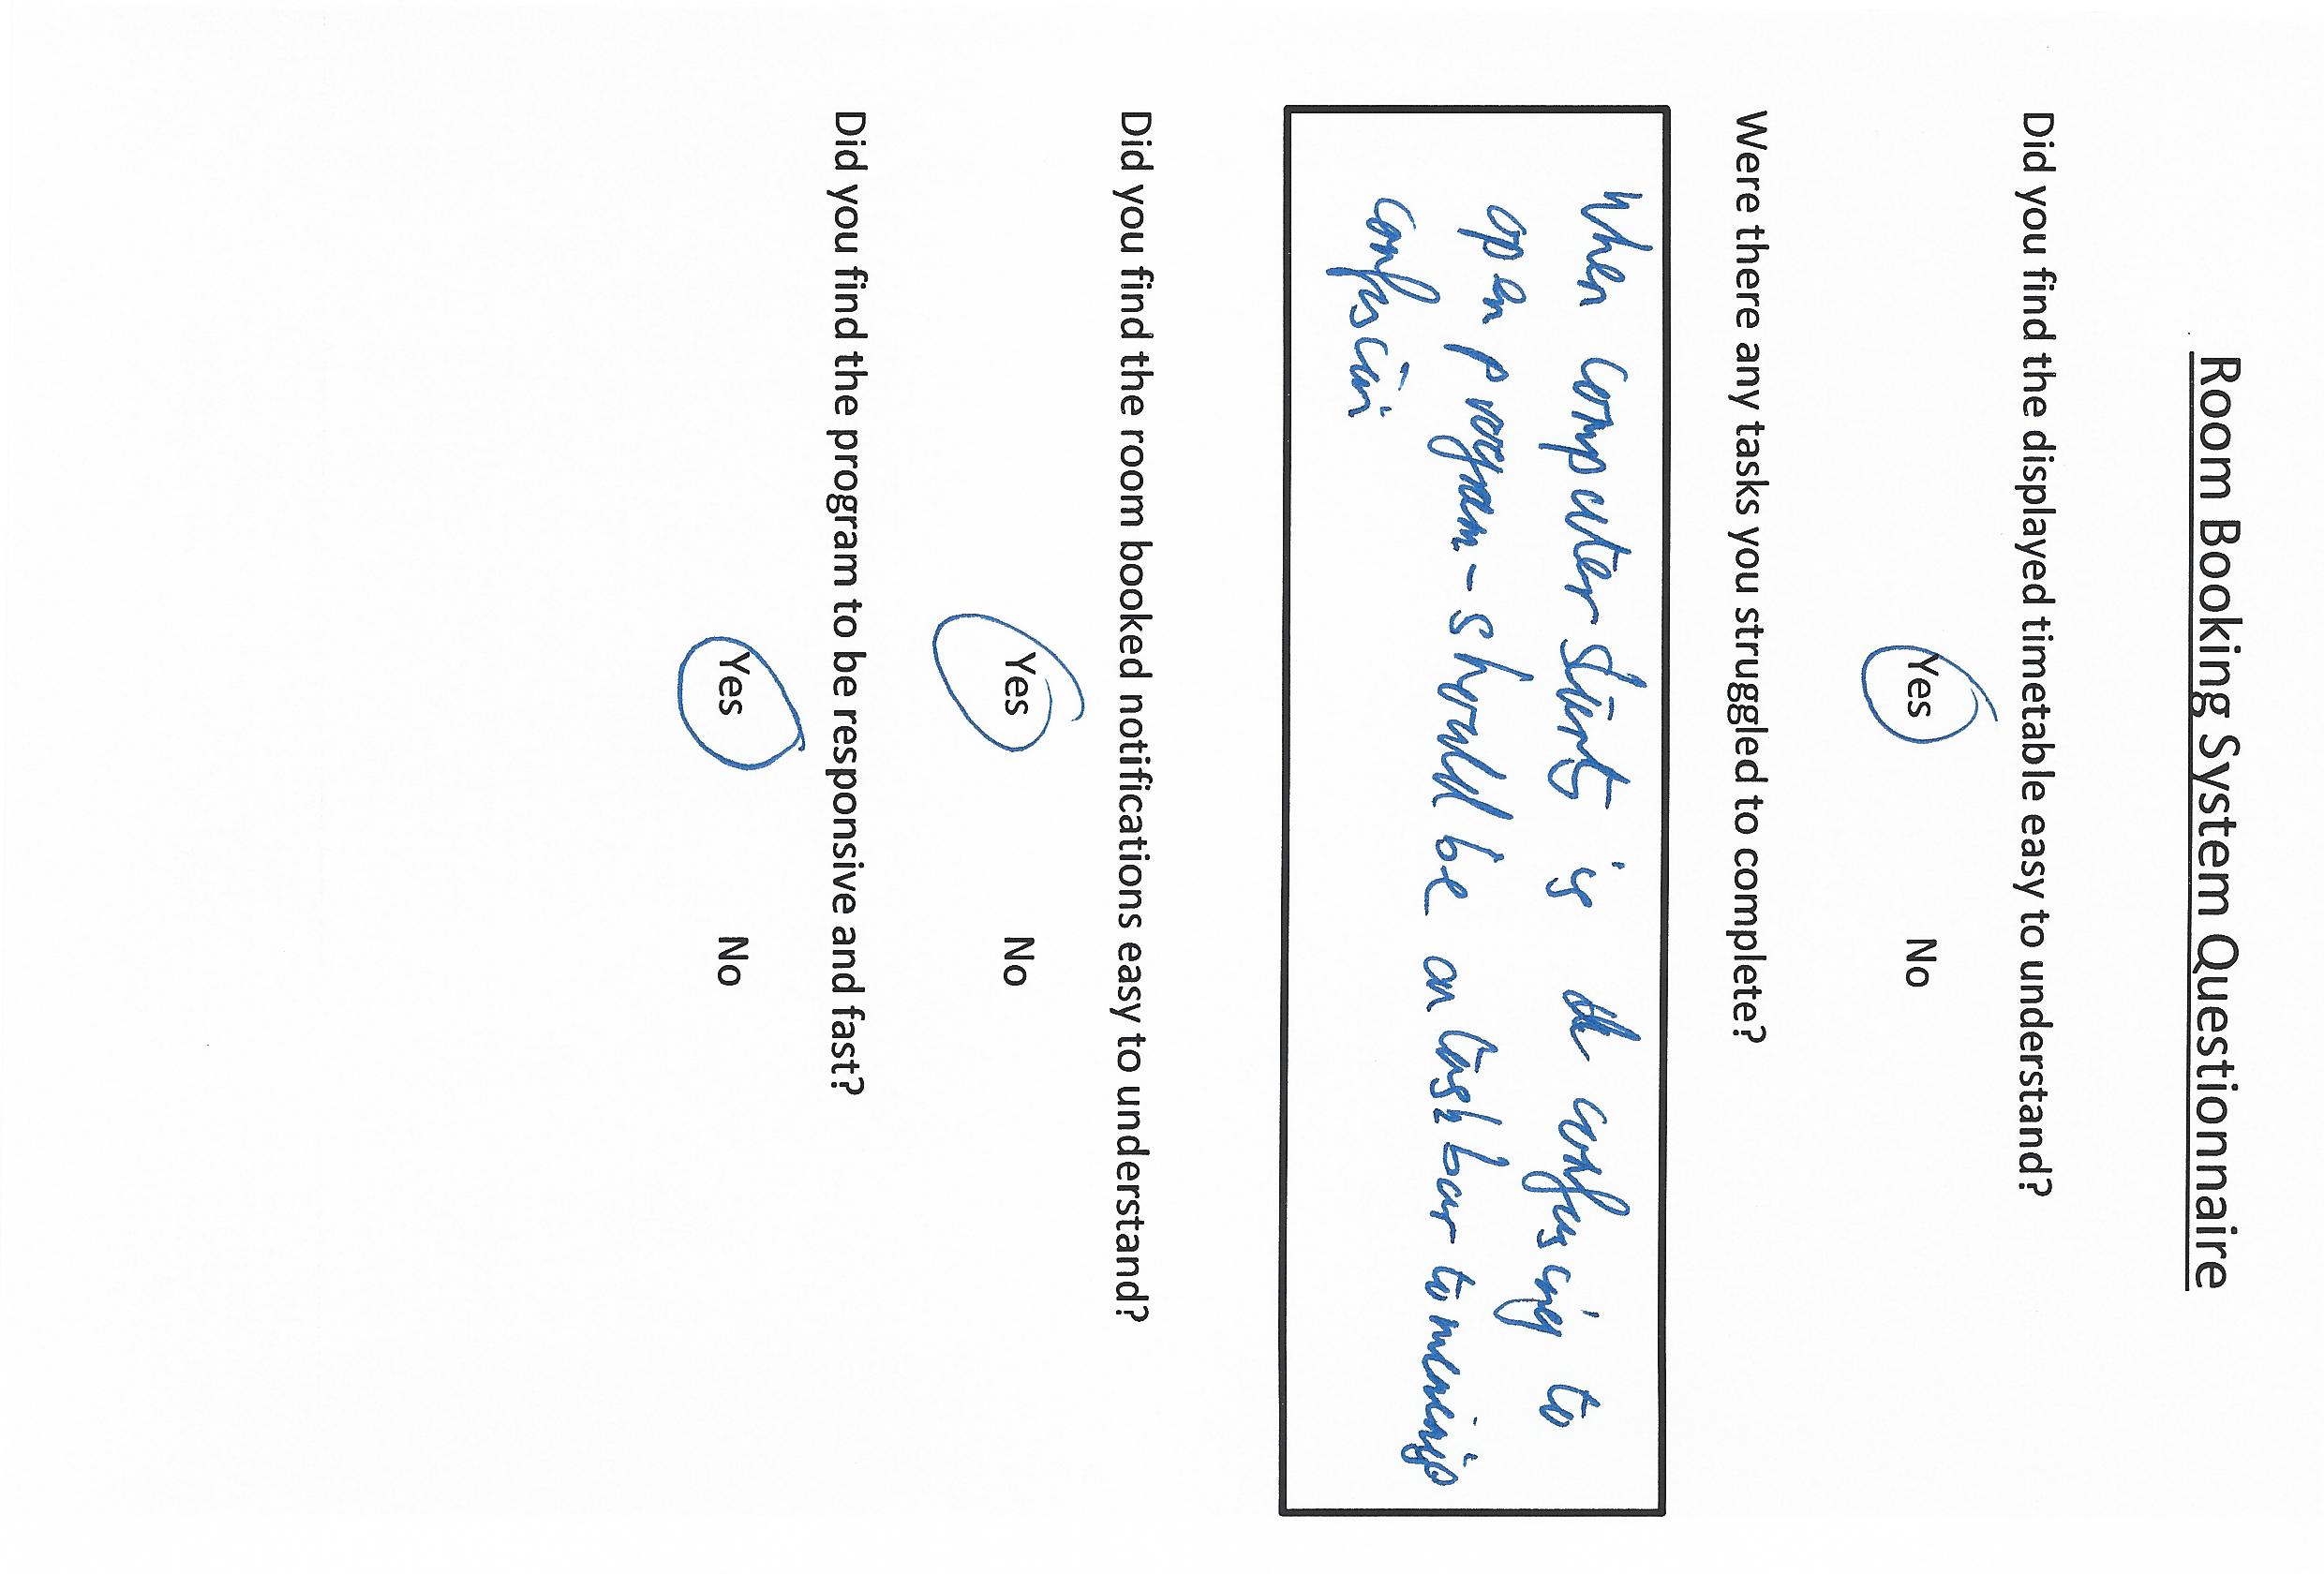 Room Booking System Questionnaire
Did you find the displayed timetable easy to understand?
Yes No
Were there any tasks you struggled to complete?
When computer starts is confusing to
open program - should be on taskbar to
confusion
Did you find the room booked notifications easy to understand?
Yes No
Did you find the program to be responsive and fast?
Yes No